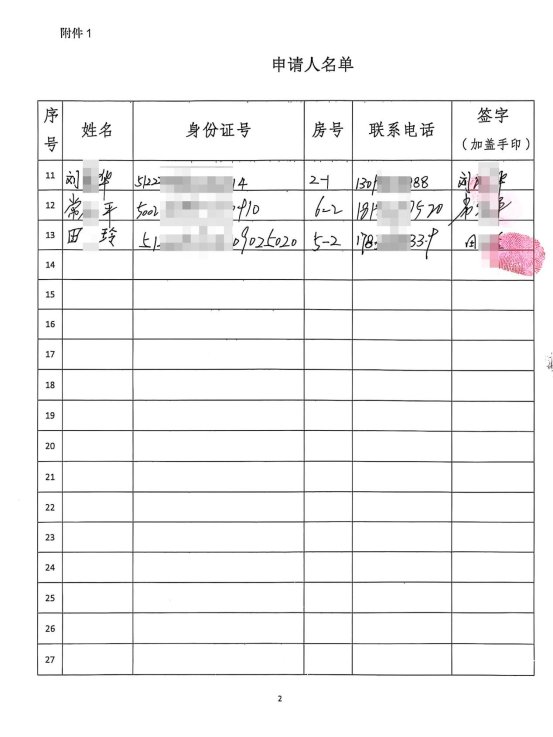 附件 1
申请人名单
序号 姓名 身份证号 房号 联系电话 签字（加盖手印）
11 刘 华 5122 14 2-1 130 88 刘
12 常 平 5002 910 6-2 181 7520 常
13 田 玲 51 09025020 5-2 178 339 田
14
15
16
17
18
19
20
21
22
23
24
25
26
27
2